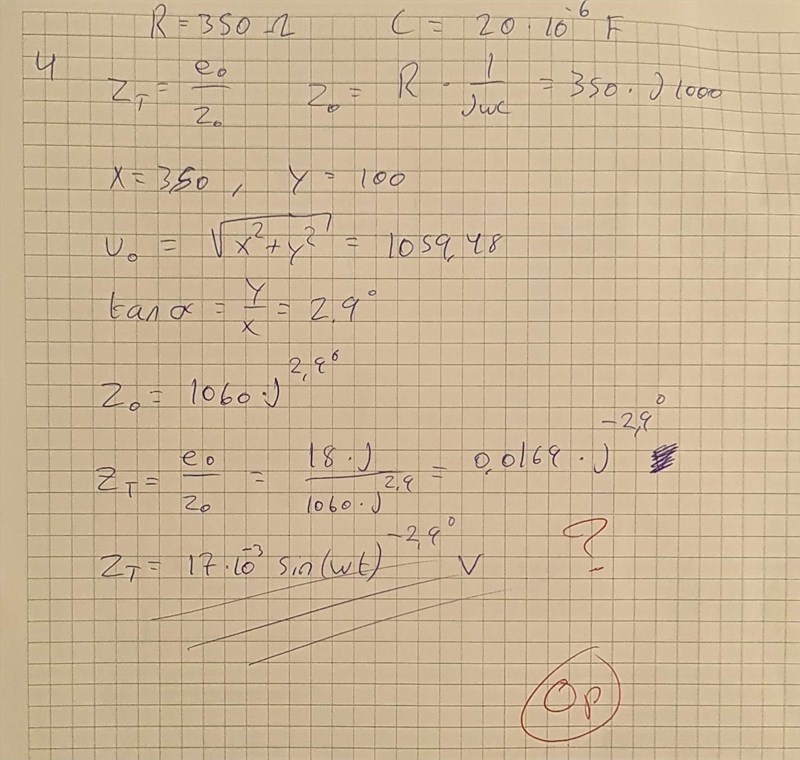 R = 350 Ω C = 20 · 10^-6 F
4 Z_T = e_0 / Z_0 Z_0 = R · 1 / jωC = 350 · j1000
X = 350, Y = 100
U_0 = √(x² + y²) = 1059,48
tan α = Y / X = 2,9°
Z_0 = 1060 · j^2,9°
Z_T = e_0 / Z_0 = 18 · j / 1060 · j^2,9 = 0,0169 · j^-2,9°
Z_T = 17 · 10^-3 sin(ωt)^-2,9° V ?
0p